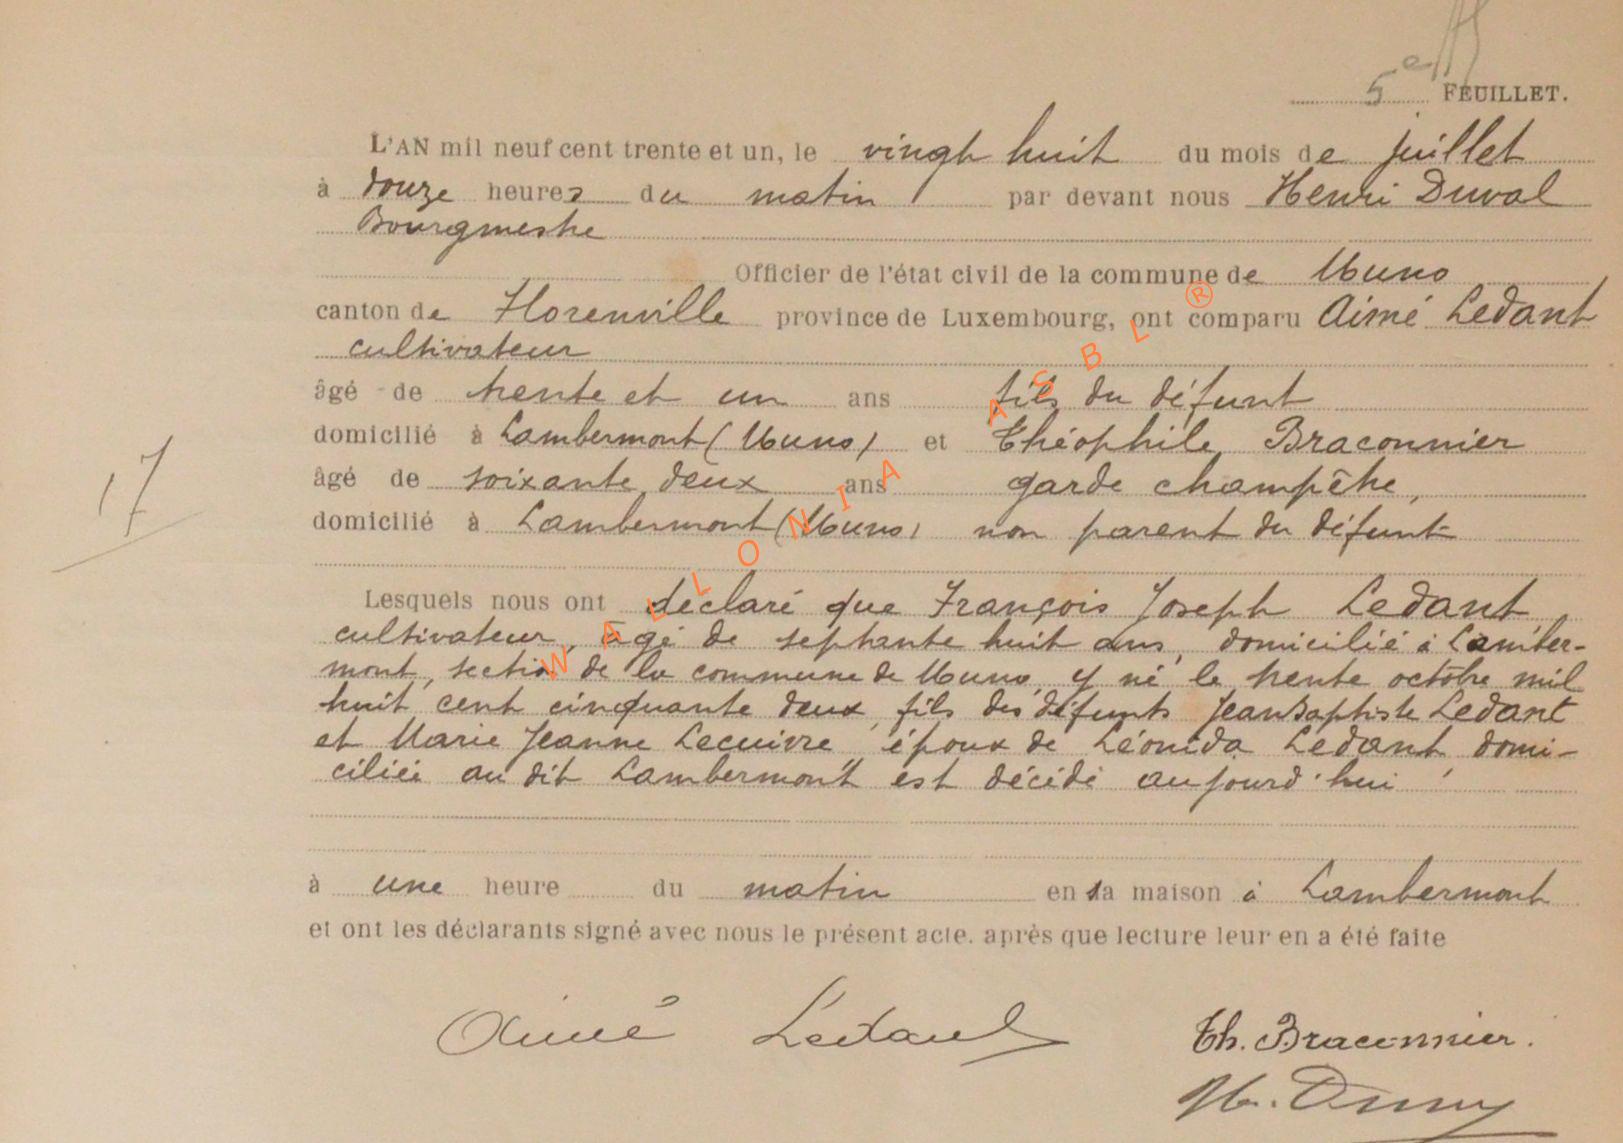 5e FEUILLET.
L'AN mil neuf cent trente et un, le vingt huit du mois de juillet
à douze heures du matin par devant nous Henri Duval
Bourgmestre
Officier de l'état civil de la commune de Muno
canton de Florenville province de Luxembourg, ont comparu Aimé Ledant
cultivateur
âgé de trente et un ans fils du défunt
domicilié à Lambermont (Muno) et Théophile Braconnier
âgé de soixante deux ans garde champêtre,
domicilié à Lambermont (Muno) non parent du défunt
17
Lesquels nous ont déclaré que François Joseph Ledant
cultivateur, âgé de septante huit ans, domicilié à Lamber-
mont, section de la commune de Muno, y né le trente octobre mil
huit cent cinquante deux, fils des défunts Jean Baptiste Ledant
et Marie Jeanne Lecuivre, époux de Léonida Ledant domi-
ciliée au dit Lambermont est décédé aujourd'hui
à une heure du matin en sa maison à Lambermont
et ont les déclarants signé avec nous le présent acte. après que lecture leur en a été faite
Aimé Ledant
Th. Braconnier.
WALLONIA ASBL ®